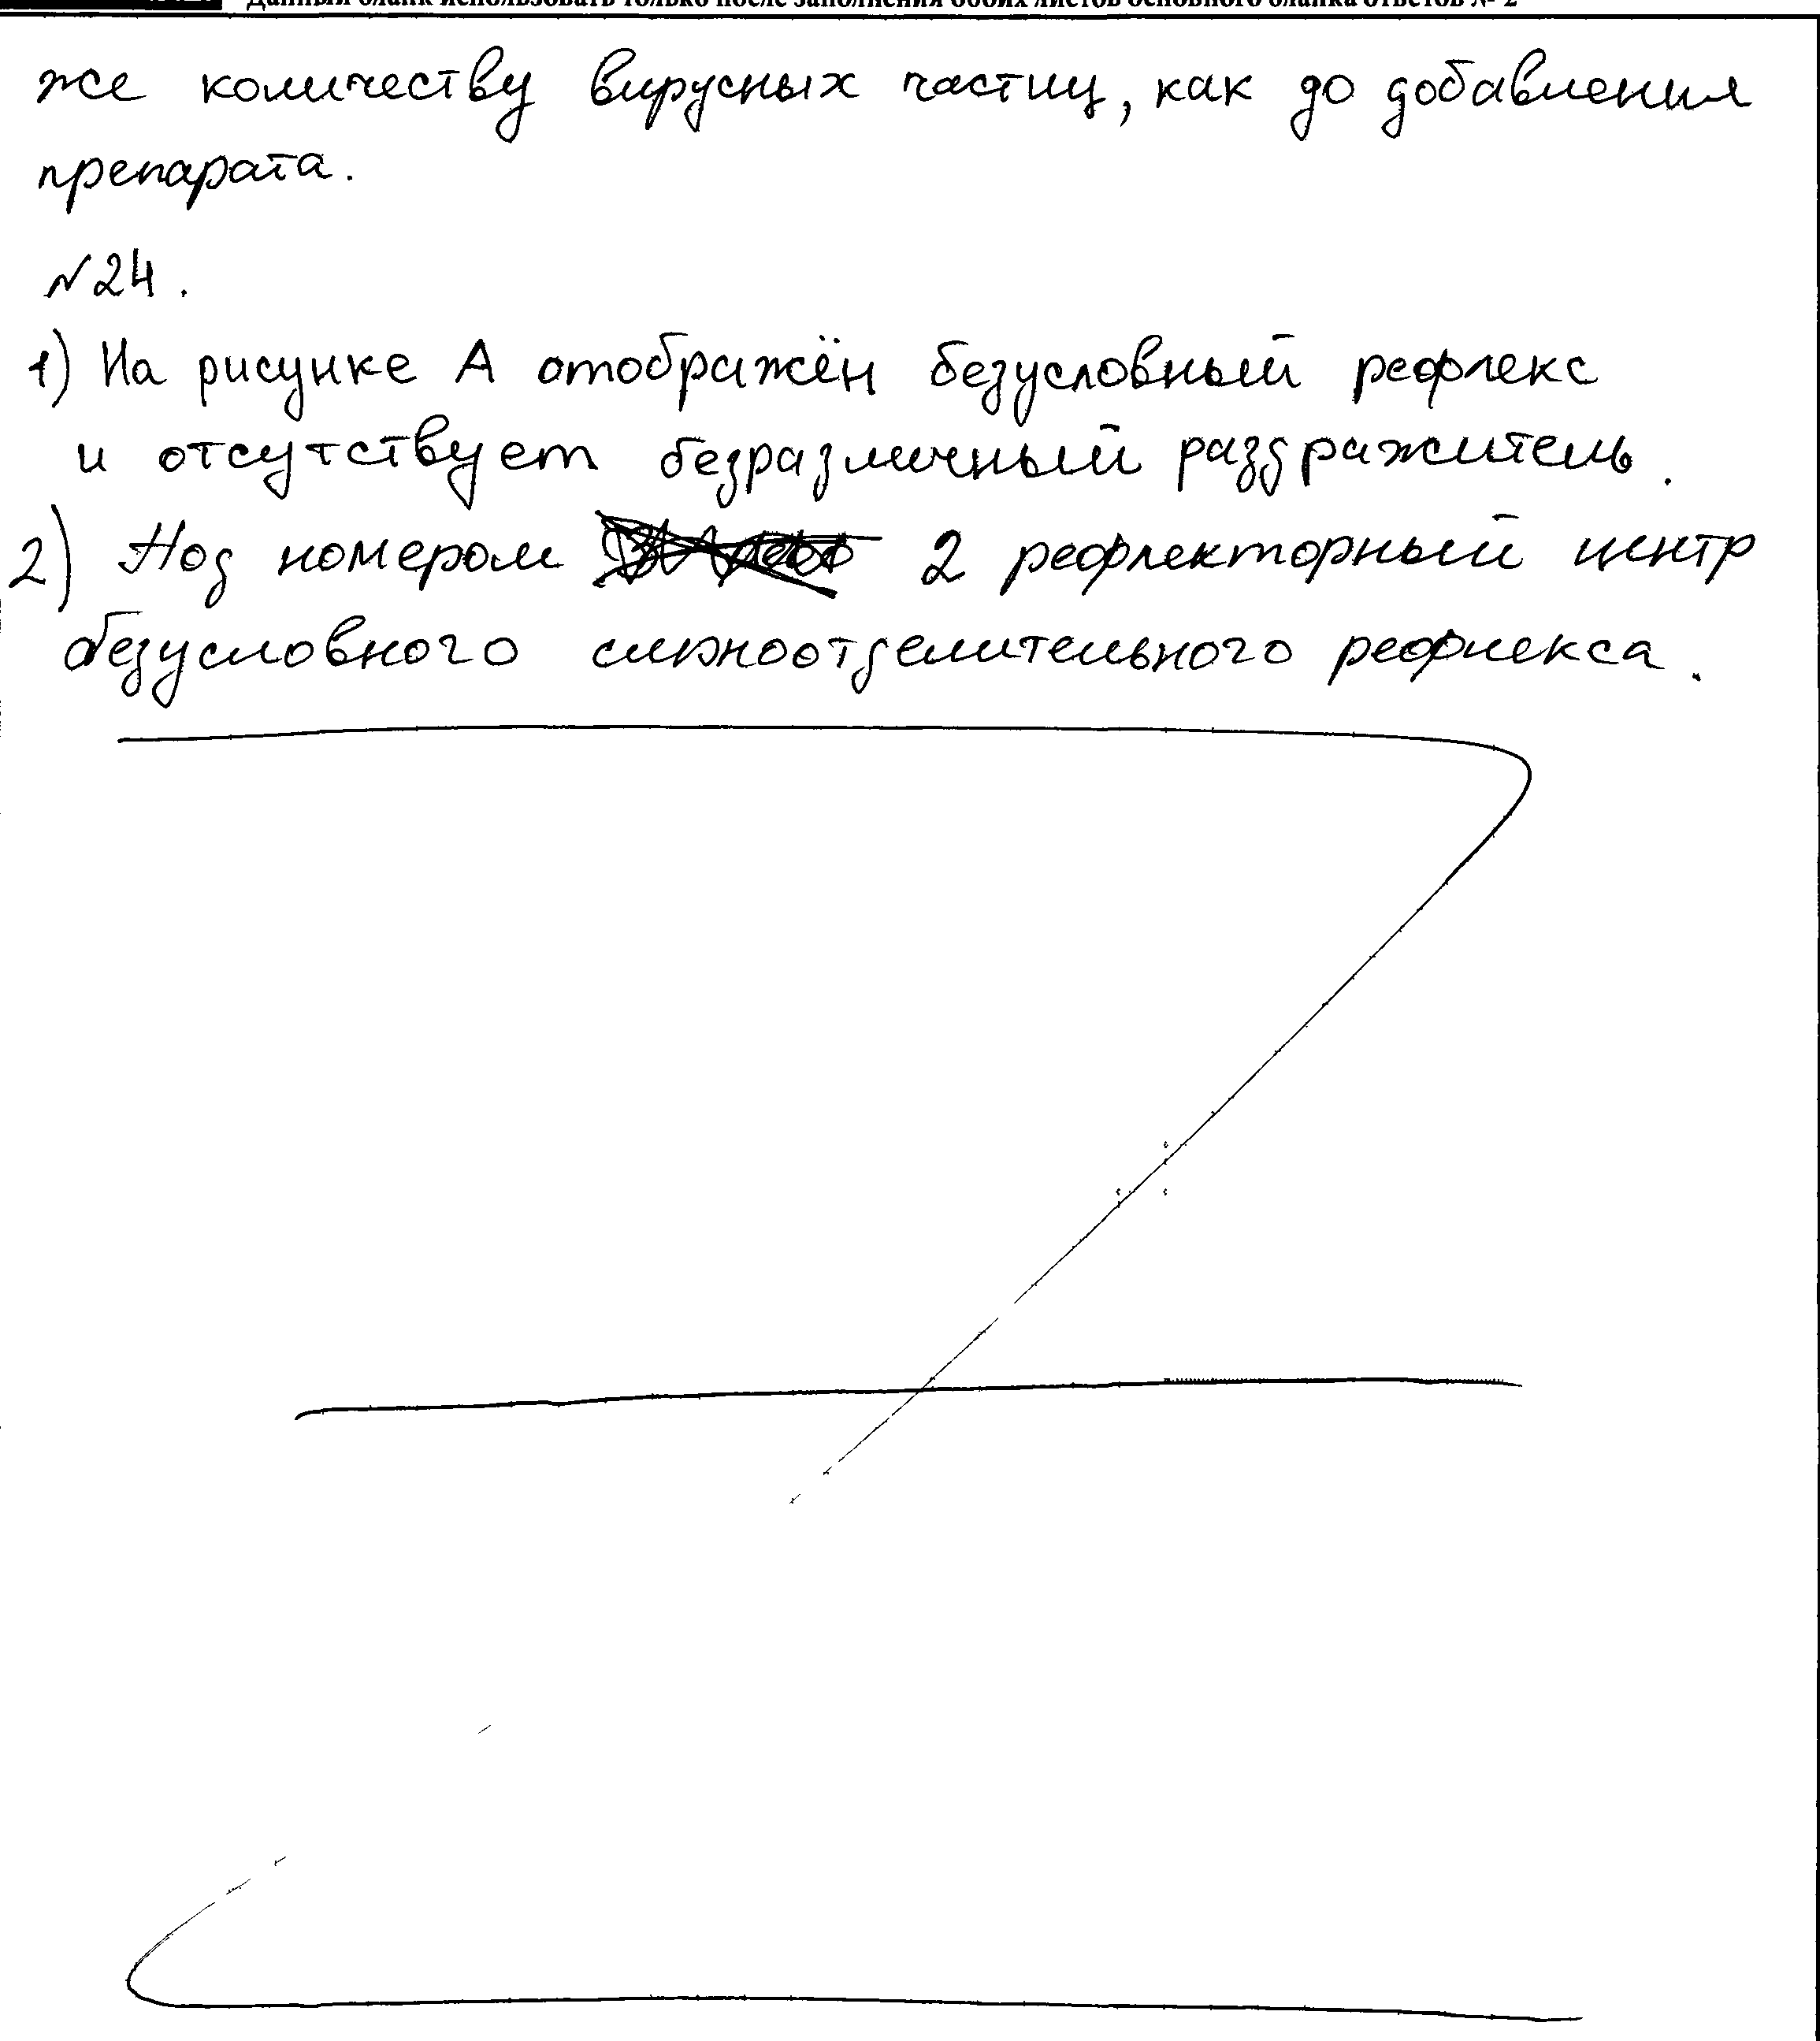 Данный бланк использовать только после заполнения обоих листов основного бланка ответов № 2
же количеству вирусных частиц, как до добавления
препарата.
№24.
1) На рисунке А отображён безусловный рефлекс
и отсутствует безразличный раздражитель.
2) Под номером 2 рефлекторный центр
безусловного слюноотделительного рефлекса.